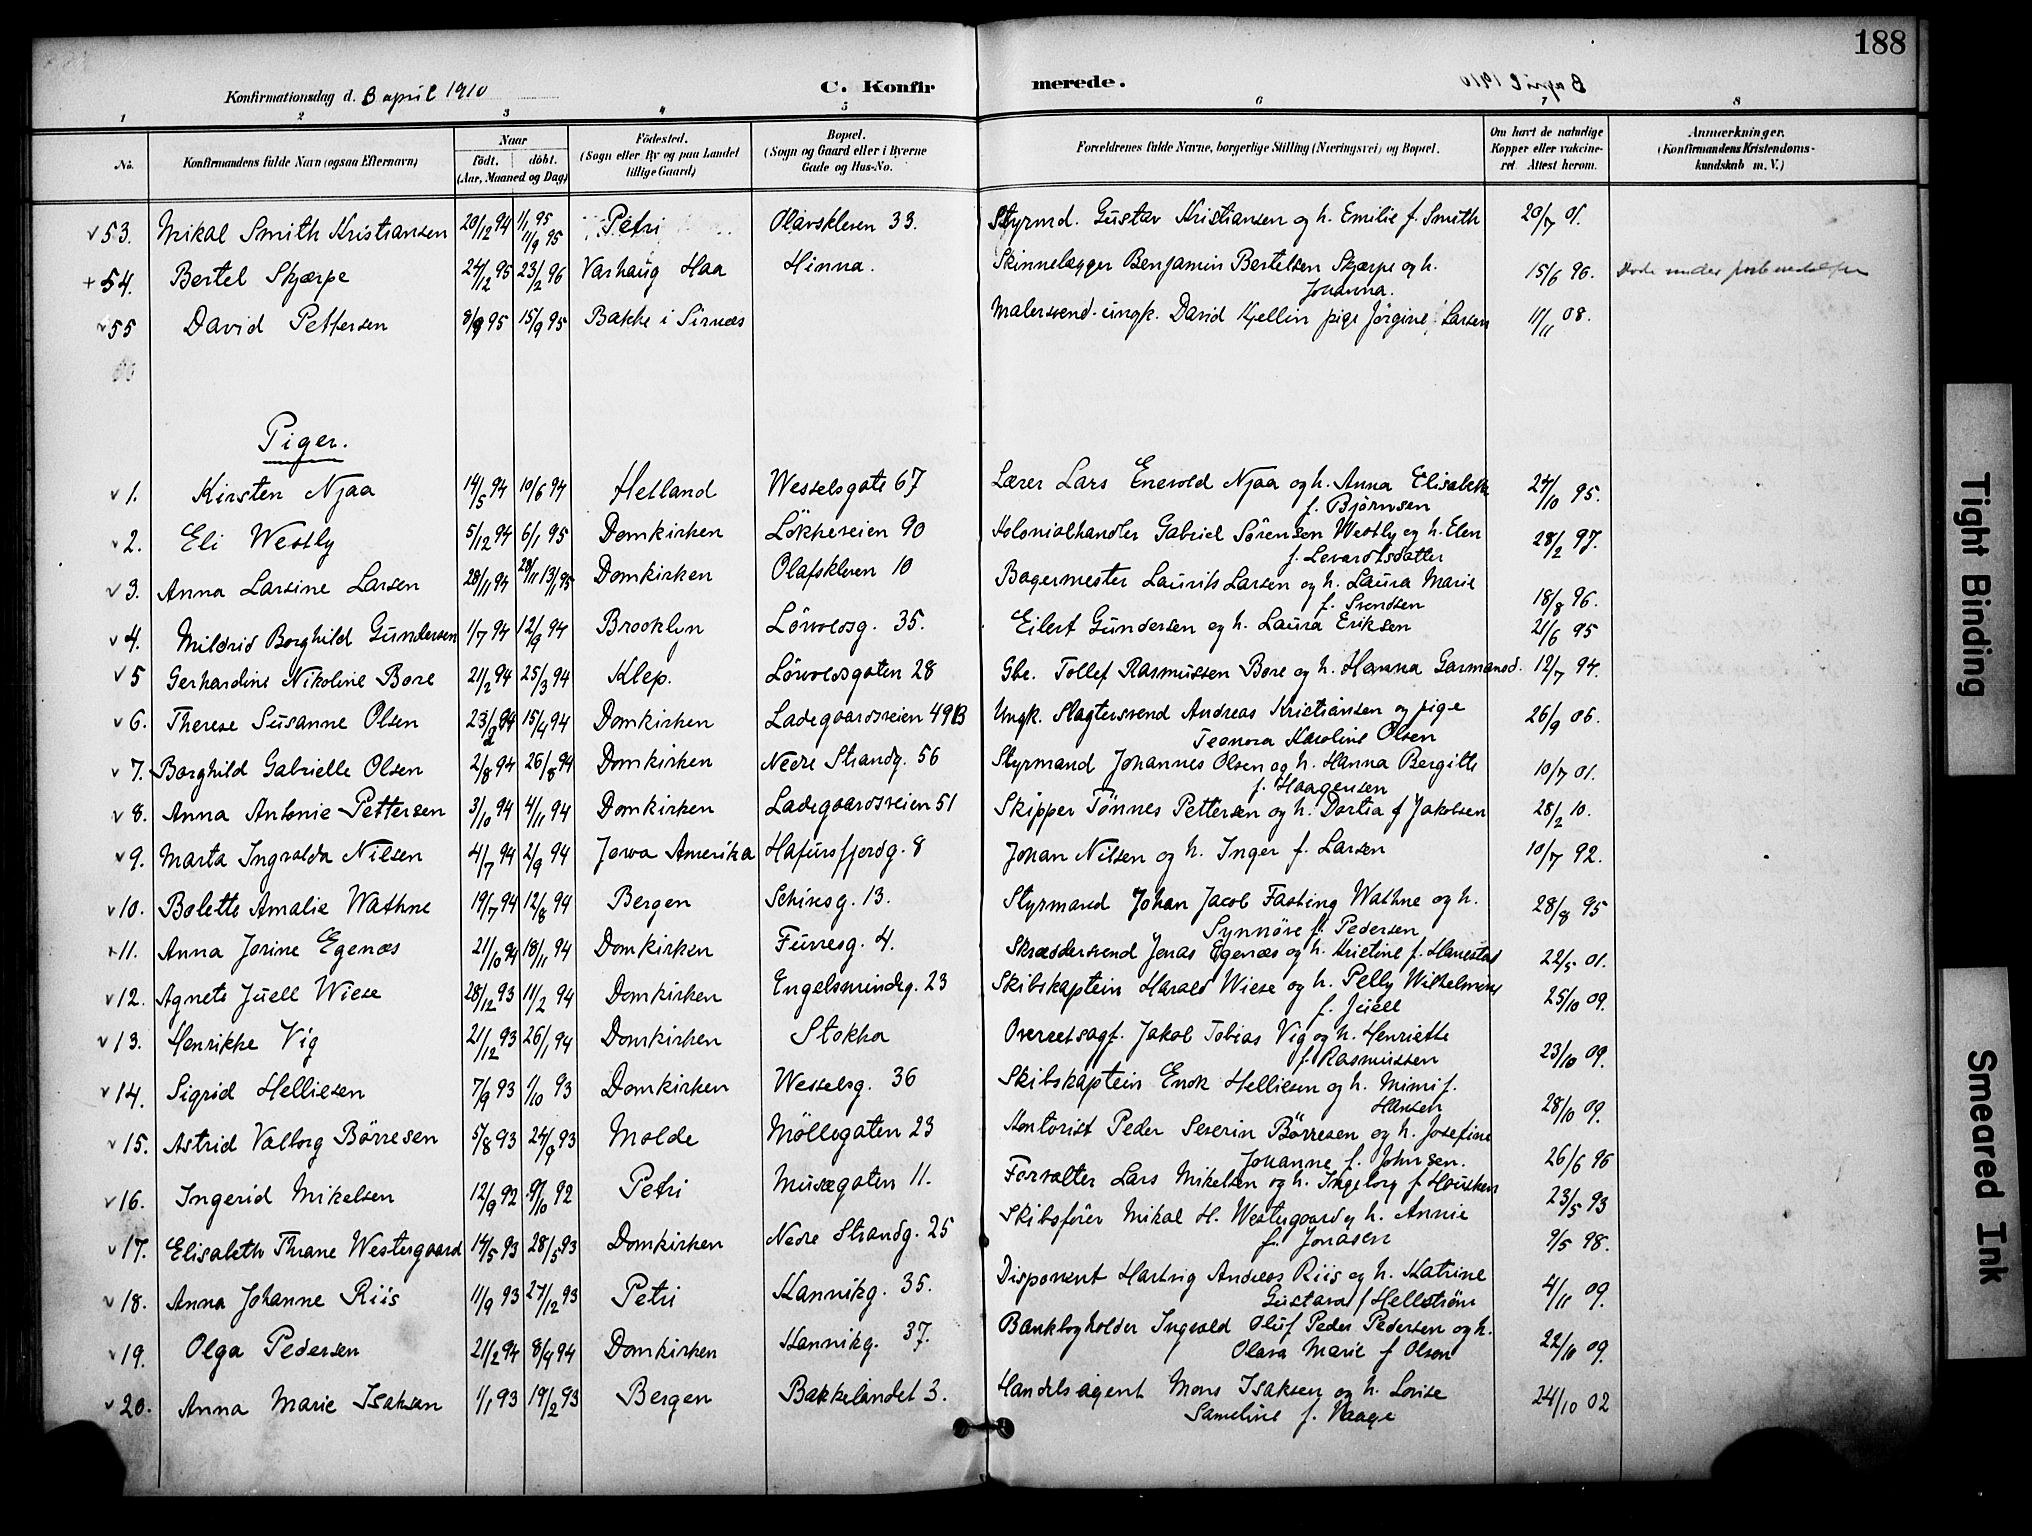 188
Konfirmationsdag d. 3 april 1910
C. Konfirmerede.
1 2 3 4 5 6 7 8
No. Konfirmandens fulde Navn (ogsaa Efternavn) Naar født. døbt. (Aar, Maaned og Dag) Fødested. (Sogn eller By og paa Landet tillige Gaard) Bopæl. (Sogn og Gaard eller i Byerne Gade og Hus-No. Forældrenes fulde Navne, borgerlige Stilling (Næringsvei) og Bopæl. Om havt de naturlige Kopper eller vakcineret Attest herom. Anmærkninger. (Konfirmandens Kristendomskundskab m. V.)
v 53. Mikal Smith Kristiansen 20/12 94 1/1 95 11/9 95 Petri Olavskleven 33. Styrmd. Gustav Kristiansen og h. Emilie f. Smith 20/7 01.
+ 54. Bertel Skjærpe 24/12 95 23/2 96 Varhaug Haa Hinna. Skinnelægger Benjamin Bertelsen Skjærpe og h. 15/6 96. Døde under forberedelsen
Johanna.
v 55 David Pettersen 8/9 95 15/9 95 Bakke i Sirnæs Malersvend ungk. David Kjellin pige Jørgine Larsen 11/11 08.
Piger.
v 1. Kirsten Njaa 14/5 94 10/6 94 Hetland Wesselsgate 67 Lærer Lars Enevold Njaa og h. Anna Elisabeth 24/10 95.
f. Bjørnsen
v 2. Eli Westly 5/12 94 6/1 95 Domkirken Løkkeveien 90 Kolonialhandler Gabriel Sørensen Westly og h. Elen 28/2 97.
f. Levardsdatter
v 3. Anna Larsine Larsen 28/11 94 13/1 95 Domkirken Olafskleven 10 Bagermester Laurits Larsen og h. Laura Marie
f. Svendsen 18/8 96.
v 4. Mildrid Borghild Gundersen 1/7 94 12/9 94 Brooklyn Løvoldsg. 35. Eilert Gundersen og h. Laura Eriksen 21/6 95
v 5 Gerhardine Nikoline Bore 21/2 94 25/3 94 Klep. Løvoldsgaten 28 Gbr. Tollef Rasmussen Bore og h. Hanna Garmansd. 12/7 94.
v 6. Therese Susanne Olsen 23/2 94 15/4 94 Domkirken Ladegaardsveien 49B Ungk. Slagtersvend Andreas Kristiansen og pige 26/9 06.
Teonora Karoline Olsen
v 7. Borghild Gabrielle Olsen 2/8 94 26/8 94 Domkirken Nedre Strandg. 56 Styrmand Johannes Olsen og h. Hanna Bergitte 10/7 01.
f. Haagensen
v 8. Anna Antonie Pettersen 3/10 94 4/11 94 Domkirken Ladegaardsveien 51 Skipper Tønnes Pettersen og h. Dortia f Jakobsen 28/2 10.
v 9. Marta Ingvalda Nilsen 4/7 94 2/9 94 Jowa Amerika Hafursfjordg. 8 Johan Nilsen og h. Inger f. Larsen 10/7 92.
v 10. Bolette Amalie Wathne 19/7 94 12/8 94 Bergen Schivesg. 13. Styrmand Johan Jacob Fasting Wathne og h. 28/8 95
Synnøve f. Pedersen
+ 11. Anna Jorine Egenæs 21/10 94 18/11 94 Domkirken Furresg. 4. Skræddersvend Jonas Egenæs og h. Kristine f. Hanestad 22/5 01.
v 12. Agnete Juell Wiese 28/12 93 11/2 94 Domkirken Engelsmindeg. 23 Skibskaptein Harald Wiese og h. Pelly Wilhelmine 25/10 09.
f. Juell
v 13. Henrikke Vig 21/12 93 26/1 94 Domkirken Stokka Overretsagf. Jakob Tobias Vig og h. Henriette
f. Rasmussen 23/10 09.
v 14. Sigrid Helliesen 7/9 93 1/10 93 Domkirken Wesselsg. 36 Skibskaptein Enok Helliesen og h. Mimi f.
Hansen 28/10 09.
v 15. Astrid Valborg Børresen 5/8 93 24/9 93 Molde Møllegaten 23 Kontorist Peder Severin Børresen og h. Josefine
Johanne f. Johnsen. 26/6 96
v 16. Ingerid Mikelsen 12/9 92 9/10 92 Petri Musægaten 11. Forvalter Lars Mikelsen og h. Ingeborg f Hausken 23/5 93
v 17. Elisabeth Thrane Westergaard 14/5 93 28/5 93 Domkirken Nedre Strandg. 25 Skibsfører Mikal H. Westergaard og h. Annie
f. Jonasen 9/5 98.
v 18. Anna Johanne Riis 11/9 93 27/12 93 Petri Kannikg. 35. Disponent Hartvig Andreas Riis og h. Katrine 4/11 09.
Gustava f Hellstrøm
v 19. Olga Pedersen 21/2 94 8/4 94 Domkirken Kannikg. 37. Bankbogholder Ingvald Oluf Peder Pedersen og h. 22/10 09.
Olava Marie f Olsen
v 20. Anna Marie Isaksen 1/1 93 19/2 93 Bergen Bakkelandet 3. Handelsagent Mons Isaksen og h. Lovise 24/10 02
Sameline f. Vaage
Tight Binding
Smeared Ink